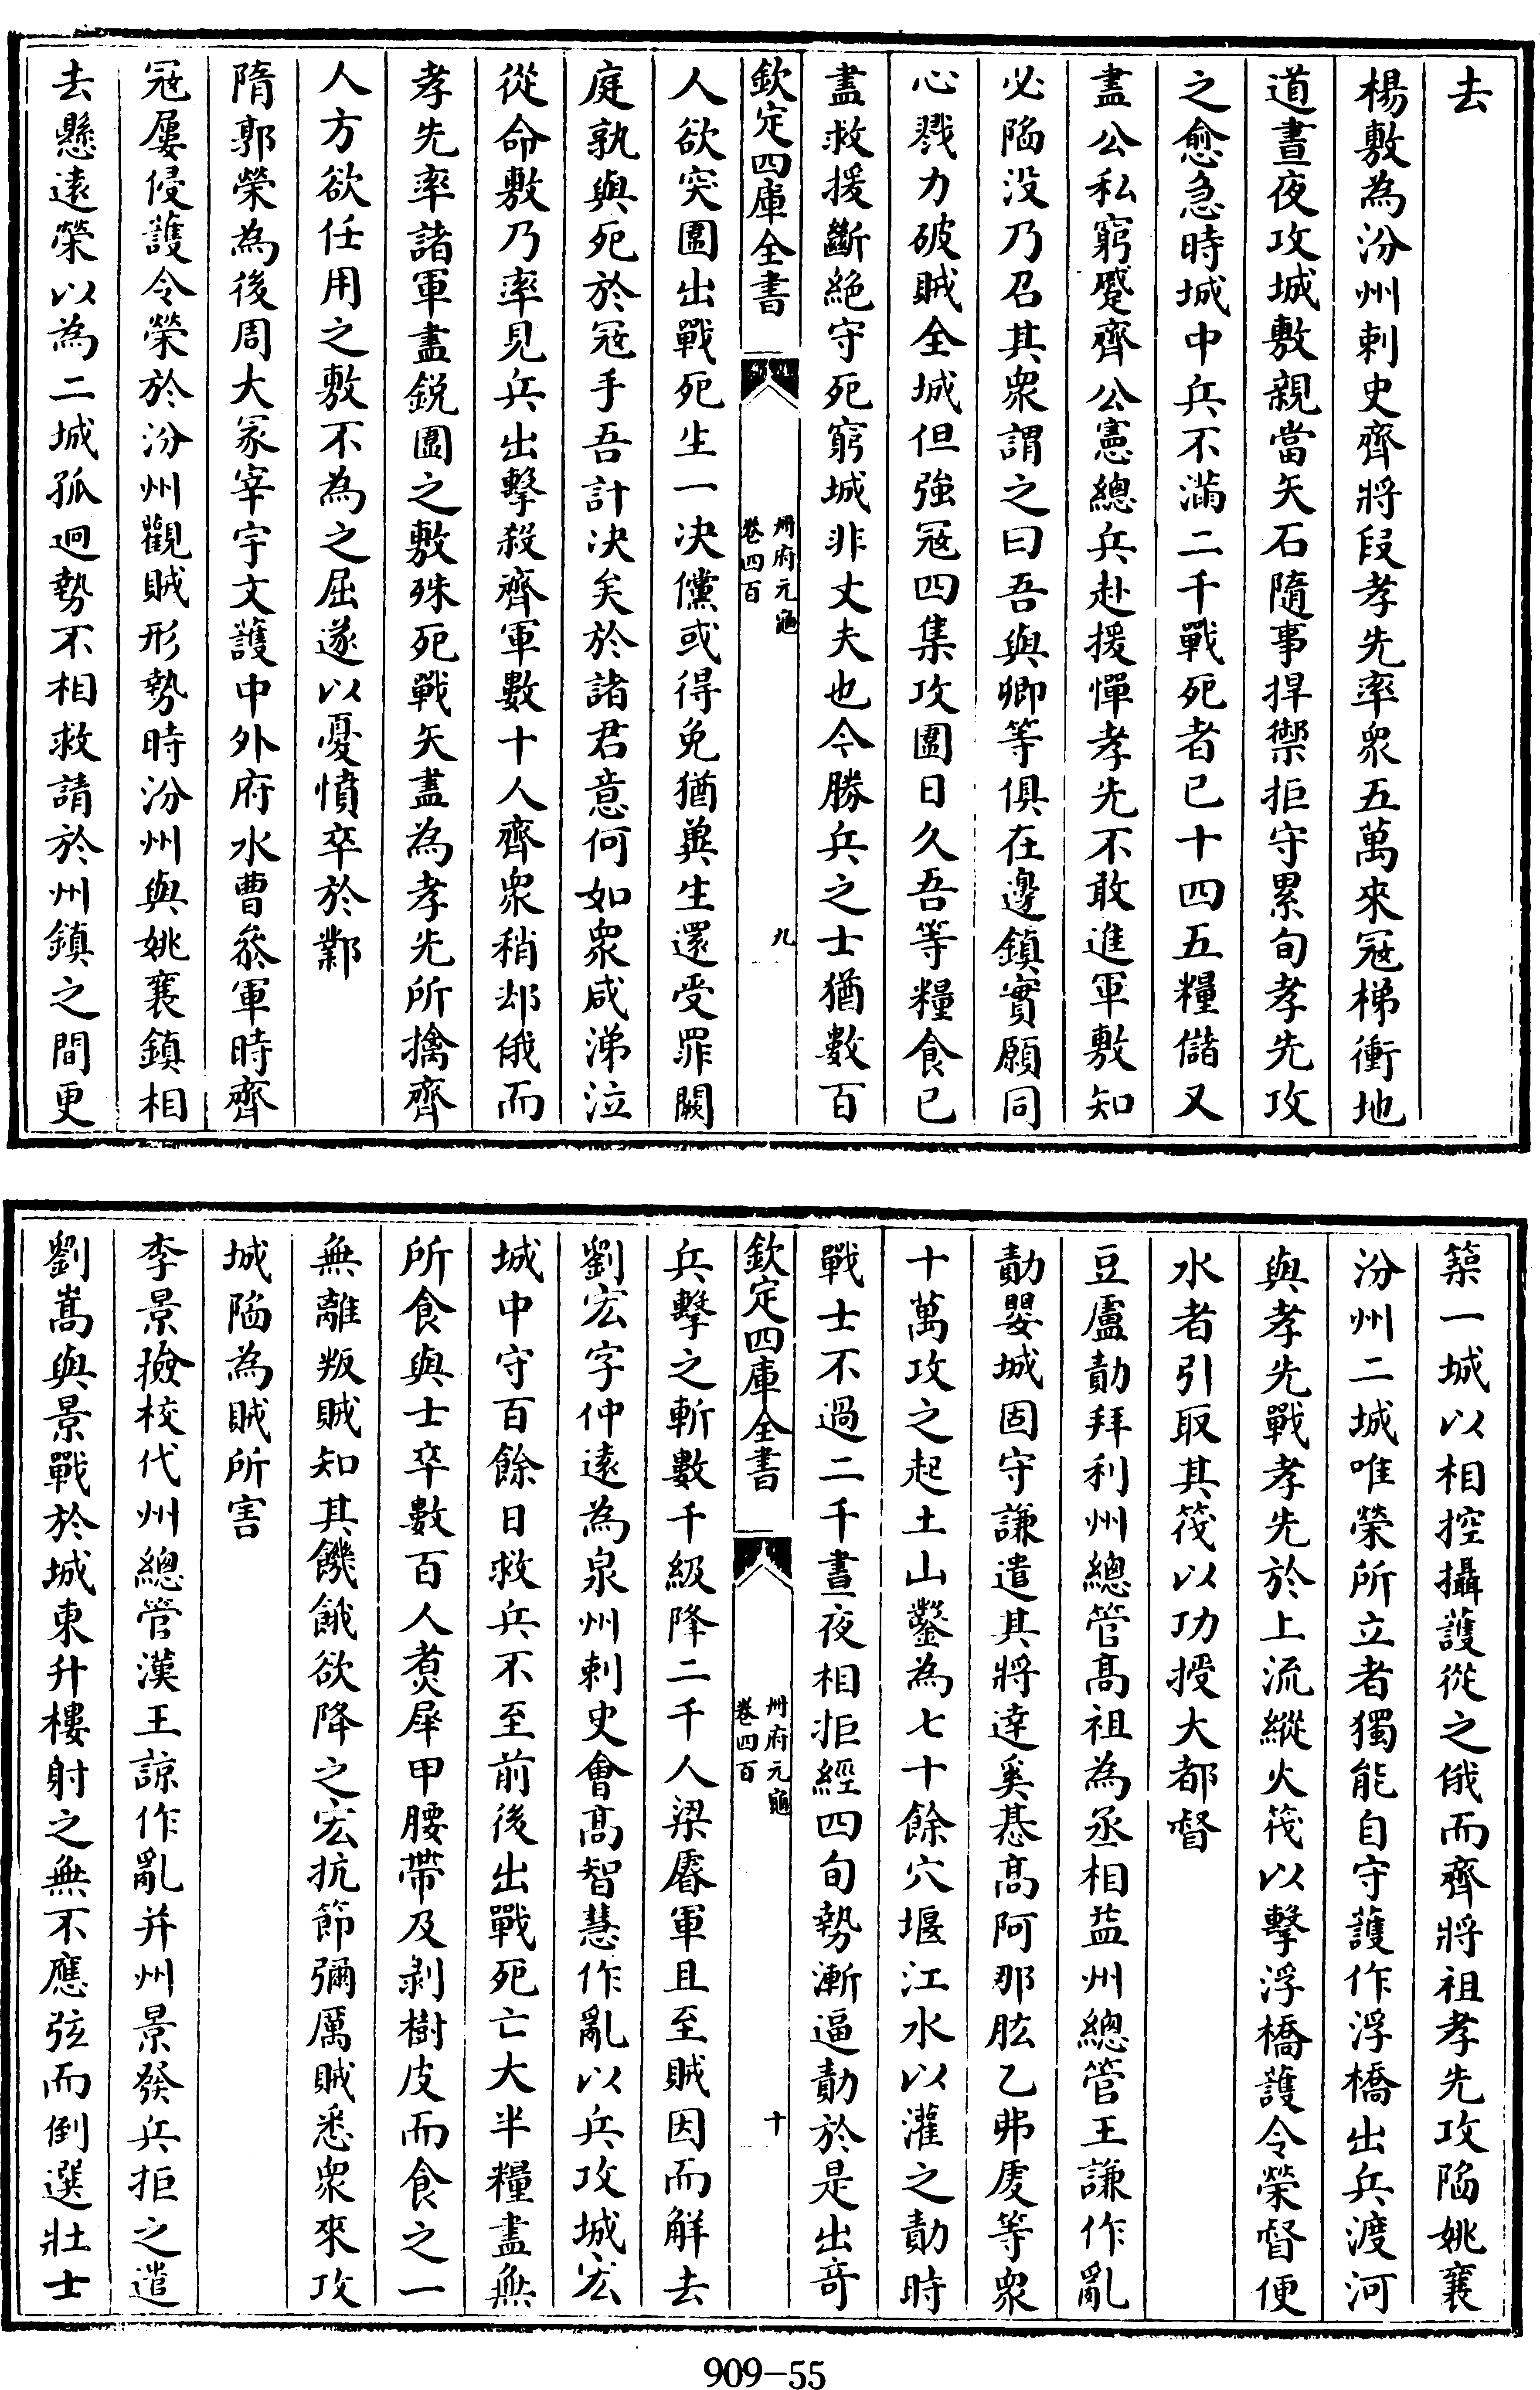 去
楊敷為汾州刺史齊將段孝先率衆五萬來冦梯衝地
道晝夜攻城敷親當矢石隨事捍禦拒守累旬孝先攻
之愈急時城中兵不滿二千戰死者已十四五糧儲又
盡公私窮蹙齊公憲總兵赴援憚孝先不敢進軍敷知
必陷没乃召其衆謂之曰吾與卿等俱在邊鎮實願同
心戮力破賊全城但強冦四集攻圍日久吾等糧食已
盡救援斷絶守死窮城非丈夫也今勝兵之士猶數百
欽定四庫全書
冊府元龜
卷四百
九
人欲突圍出戰死生一决儻或得免猶兾生還受罪闕
庭孰與死於冦手吾計决矣於諸君意何如衆咸涕泣
從命敷乃率見兵出擊殺齊軍數十人齊衆稍却俄而
孝先率諸軍盡鋭圍之敷殊死戰矢盡為孝先所擒齊
人方欲任用之敷不為之屈遂以憂憤卒於鄴
隋郭榮為後周大冢宰宇文護中外府水曹叅軍時齊
冦屢侵護令榮於汾州觀賊形勢時汾州與姚襄鎮相
去懸遠榮以為二城孤迥勢不相救請於州鎮之間更
築一城以相控攝護從之俄而齊將祖孝先攻陷姚襄
汾州二城唯榮所立者獨能自守護作浮橋出兵渡河
與孝先戰孝先於上流縱火筏以擊浮橋護令榮督便
水者引取其筏以功授大都督
豆盧勣拜利州總管髙祖為丞相益州總管王謙作亂
勣嬰城固守謙遣其將達奚惎髙阿那肱乙弗虔等衆
十萬攻之起土山鑿為七十餘穴堰江水以灌之勣時
戰士不過二千晝夜相拒經四旬勢漸逼勣於是出竒
欽定四庫全書
冊府元龜
卷四百
十
兵擊之斬數千級降二千人梁睿軍且至賊因而解去
劉宏字仲遠為泉州刺史會髙智慧作亂以兵攻城宏
城中守百餘日救兵不至前後出戰死亡大半糧盡無
所食與士卒數百人煑犀甲腰帶及剥樹皮而食之一
無離叛賊知其饑餓欲降之宏抗節彌厲賊悉衆來攻
城陷為賊所害
李景撿校代州總管漢王諒作亂并州景發兵拒之遣
劉嵩與景戰於城東升樓射之無不應弦而倒選壯士
909-55